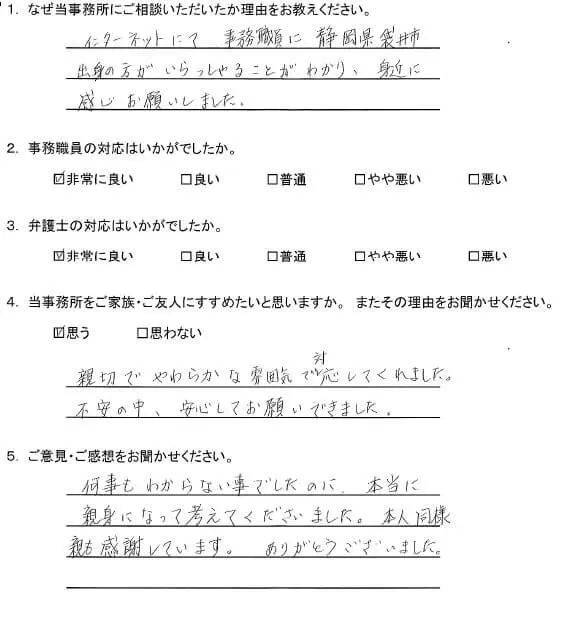 1. なぜ当事務所にご相談いただいたか理由をお教えください。
インターネットにて 事務職員に 静岡県袋井市
出身の方が いらっしゃることがわかり、身近に
感じ お願いしました。
2. 事務職員の対応はいかがでしたか。
☑非常に良い □良い □普通 □やや悪い □悪い
3. 弁護士の対応はいかがでしたか。
☑非常に良い □良い □普通 □やや悪い □悪い
4. 当事務所をご家族・ご友人にすすめたいと思いますか。 またその理由をお聞かせください。
☑思う □思わない
親切で やわらかな 雰囲気で対応してくれました。
不安の中、安心してお願いできました。
5. ご意見・ご感想をお聞かせください。
何事も わからない事でしたのに、本当に
親身になって考えてくださいました。本人同様
親も感謝しています。 ありがとうございました。